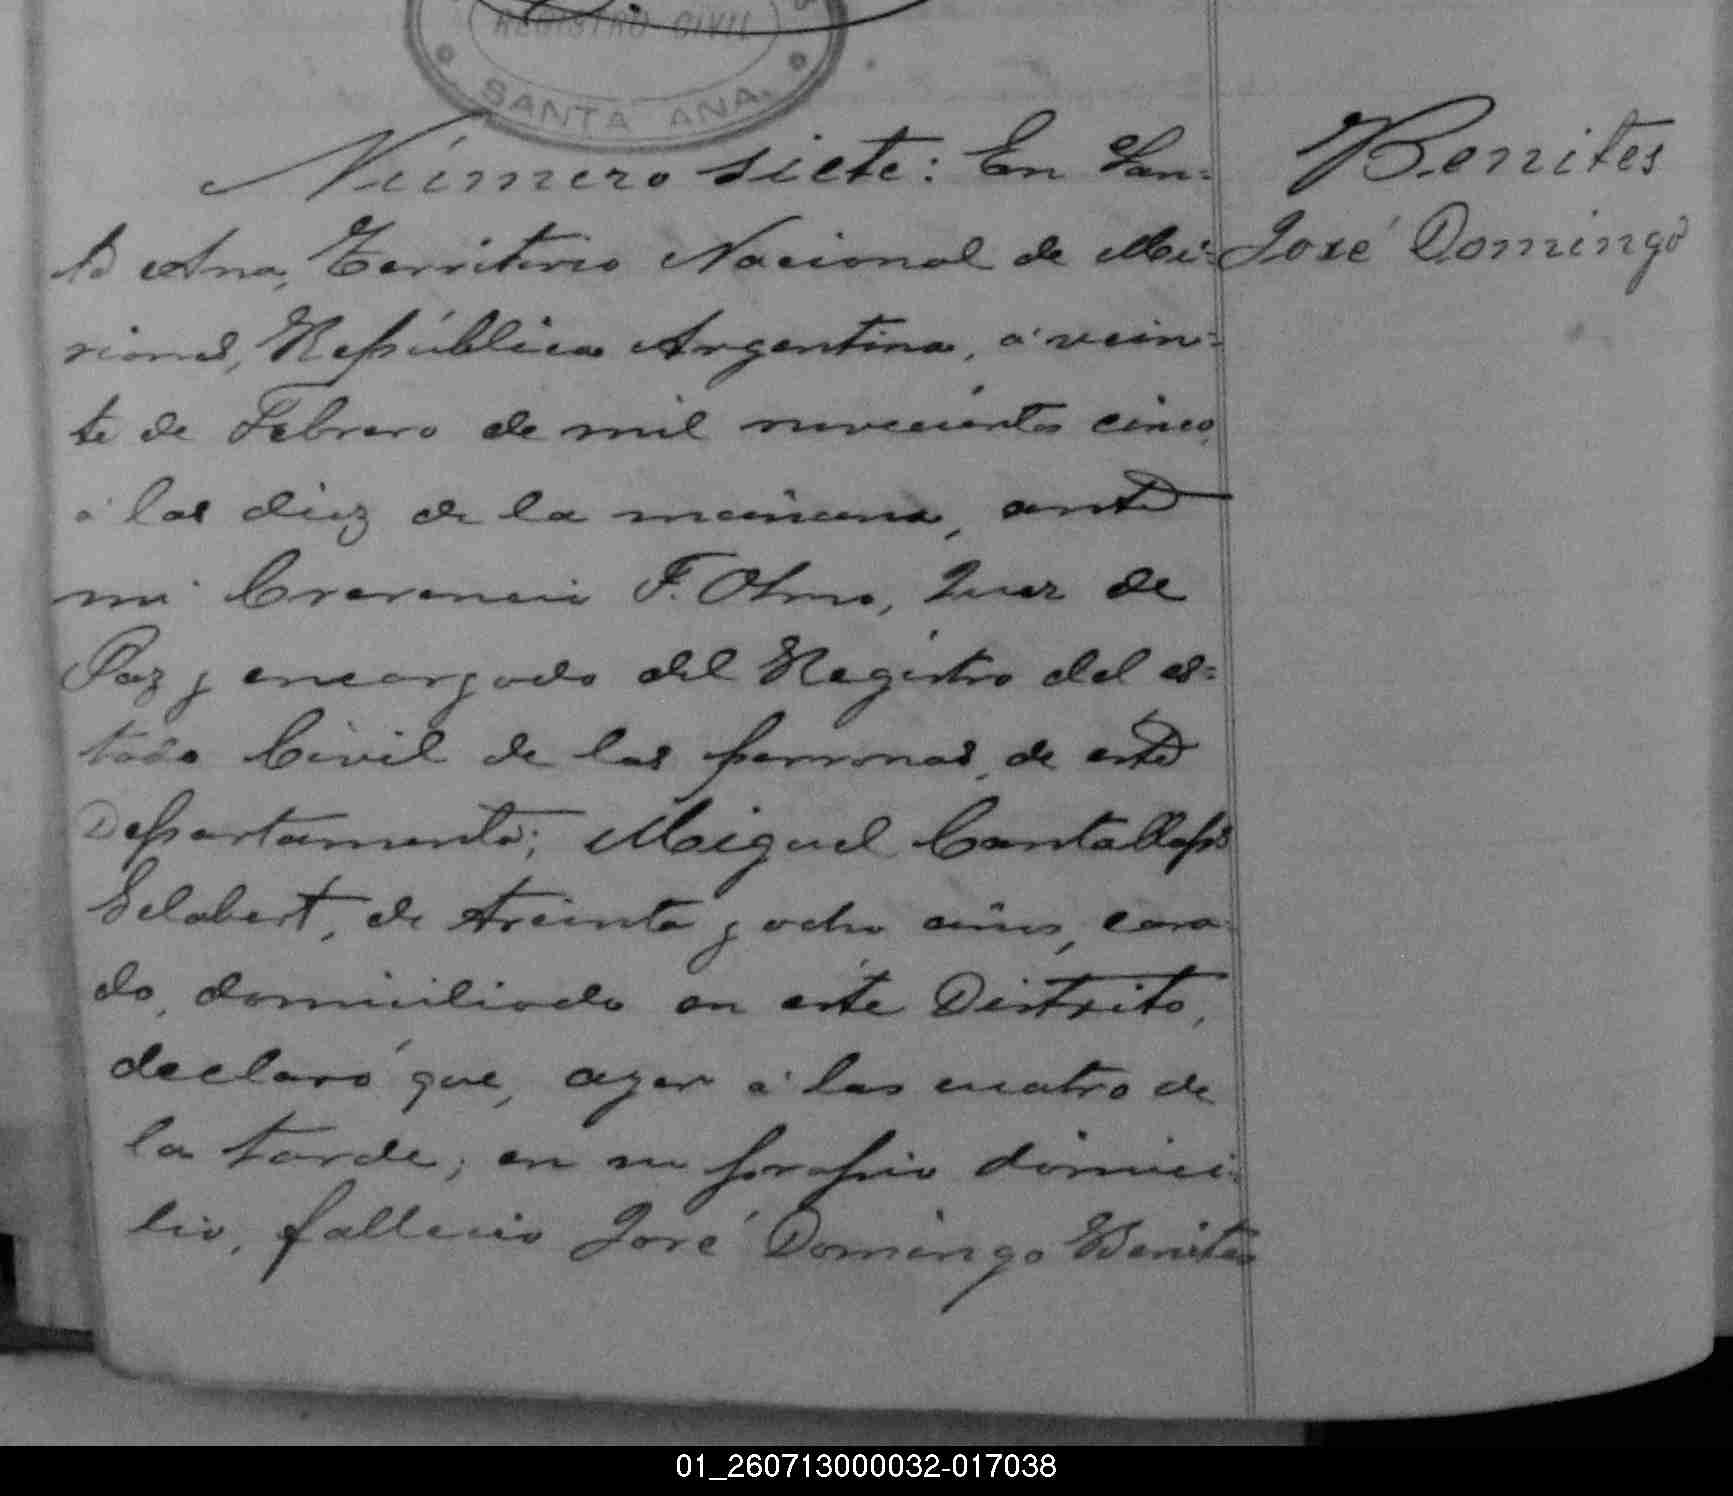 REGISTRO CIVIL
SANTA ANA
Número siete: En San=
ta Ana, Territorio Nacional de Mi=
siones, República Argentina, á vein=
te de Febrero de mil novecientos cinco,
á las diez de la mañana, ante
mi F. Olmo, Juez de
Paz y encargado del Registro del es=
tado Civil de las personas, de este
Departamento; Miguel Cantallops
Gelabert, de treinta y ocho años, casa-
do, domiciliado en este Distrito,
declaró que, ayer á las cuatro de
la tarde; en su propio domici-
lio, falleció José Domingo Benites
Benites
José Domingo
01_260713000032-017038